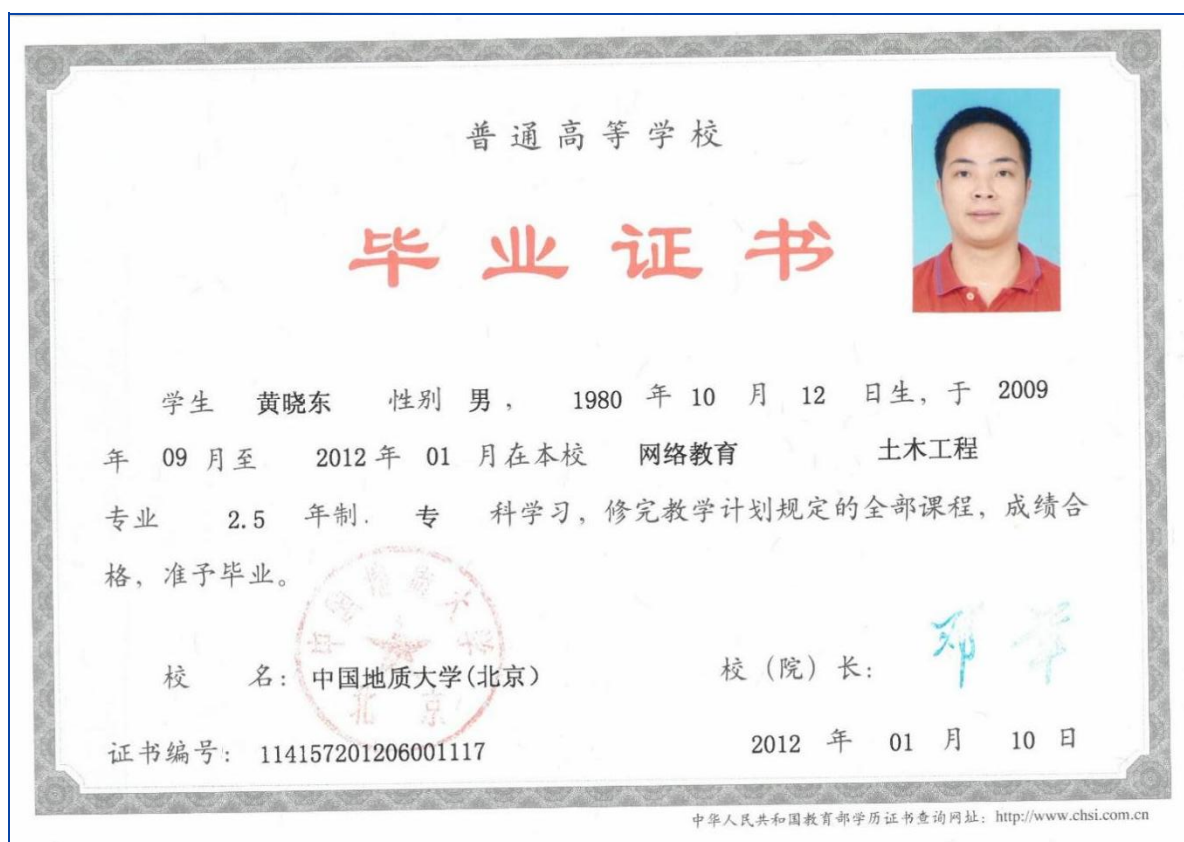 普通高等学校
毕业证书
学生 黄晓东 性别 男， 1980 年 10 月 12 日生，于 2009
年 09 月至 2012 年 01 月在本校 网络教育 土木工程
专业 2.5 年制. 专 科学习，修完教学计划规定的全部课程，成绩合
格，准予毕业。
中国地质大学
北京
校 名：中国地质大学(北京) 校（院）长：
证书编号： 114157201206001117 2012 年 01 月 10 日
中华人民共和国教育部学历证书查询网址：http://www.chsi.com.cn